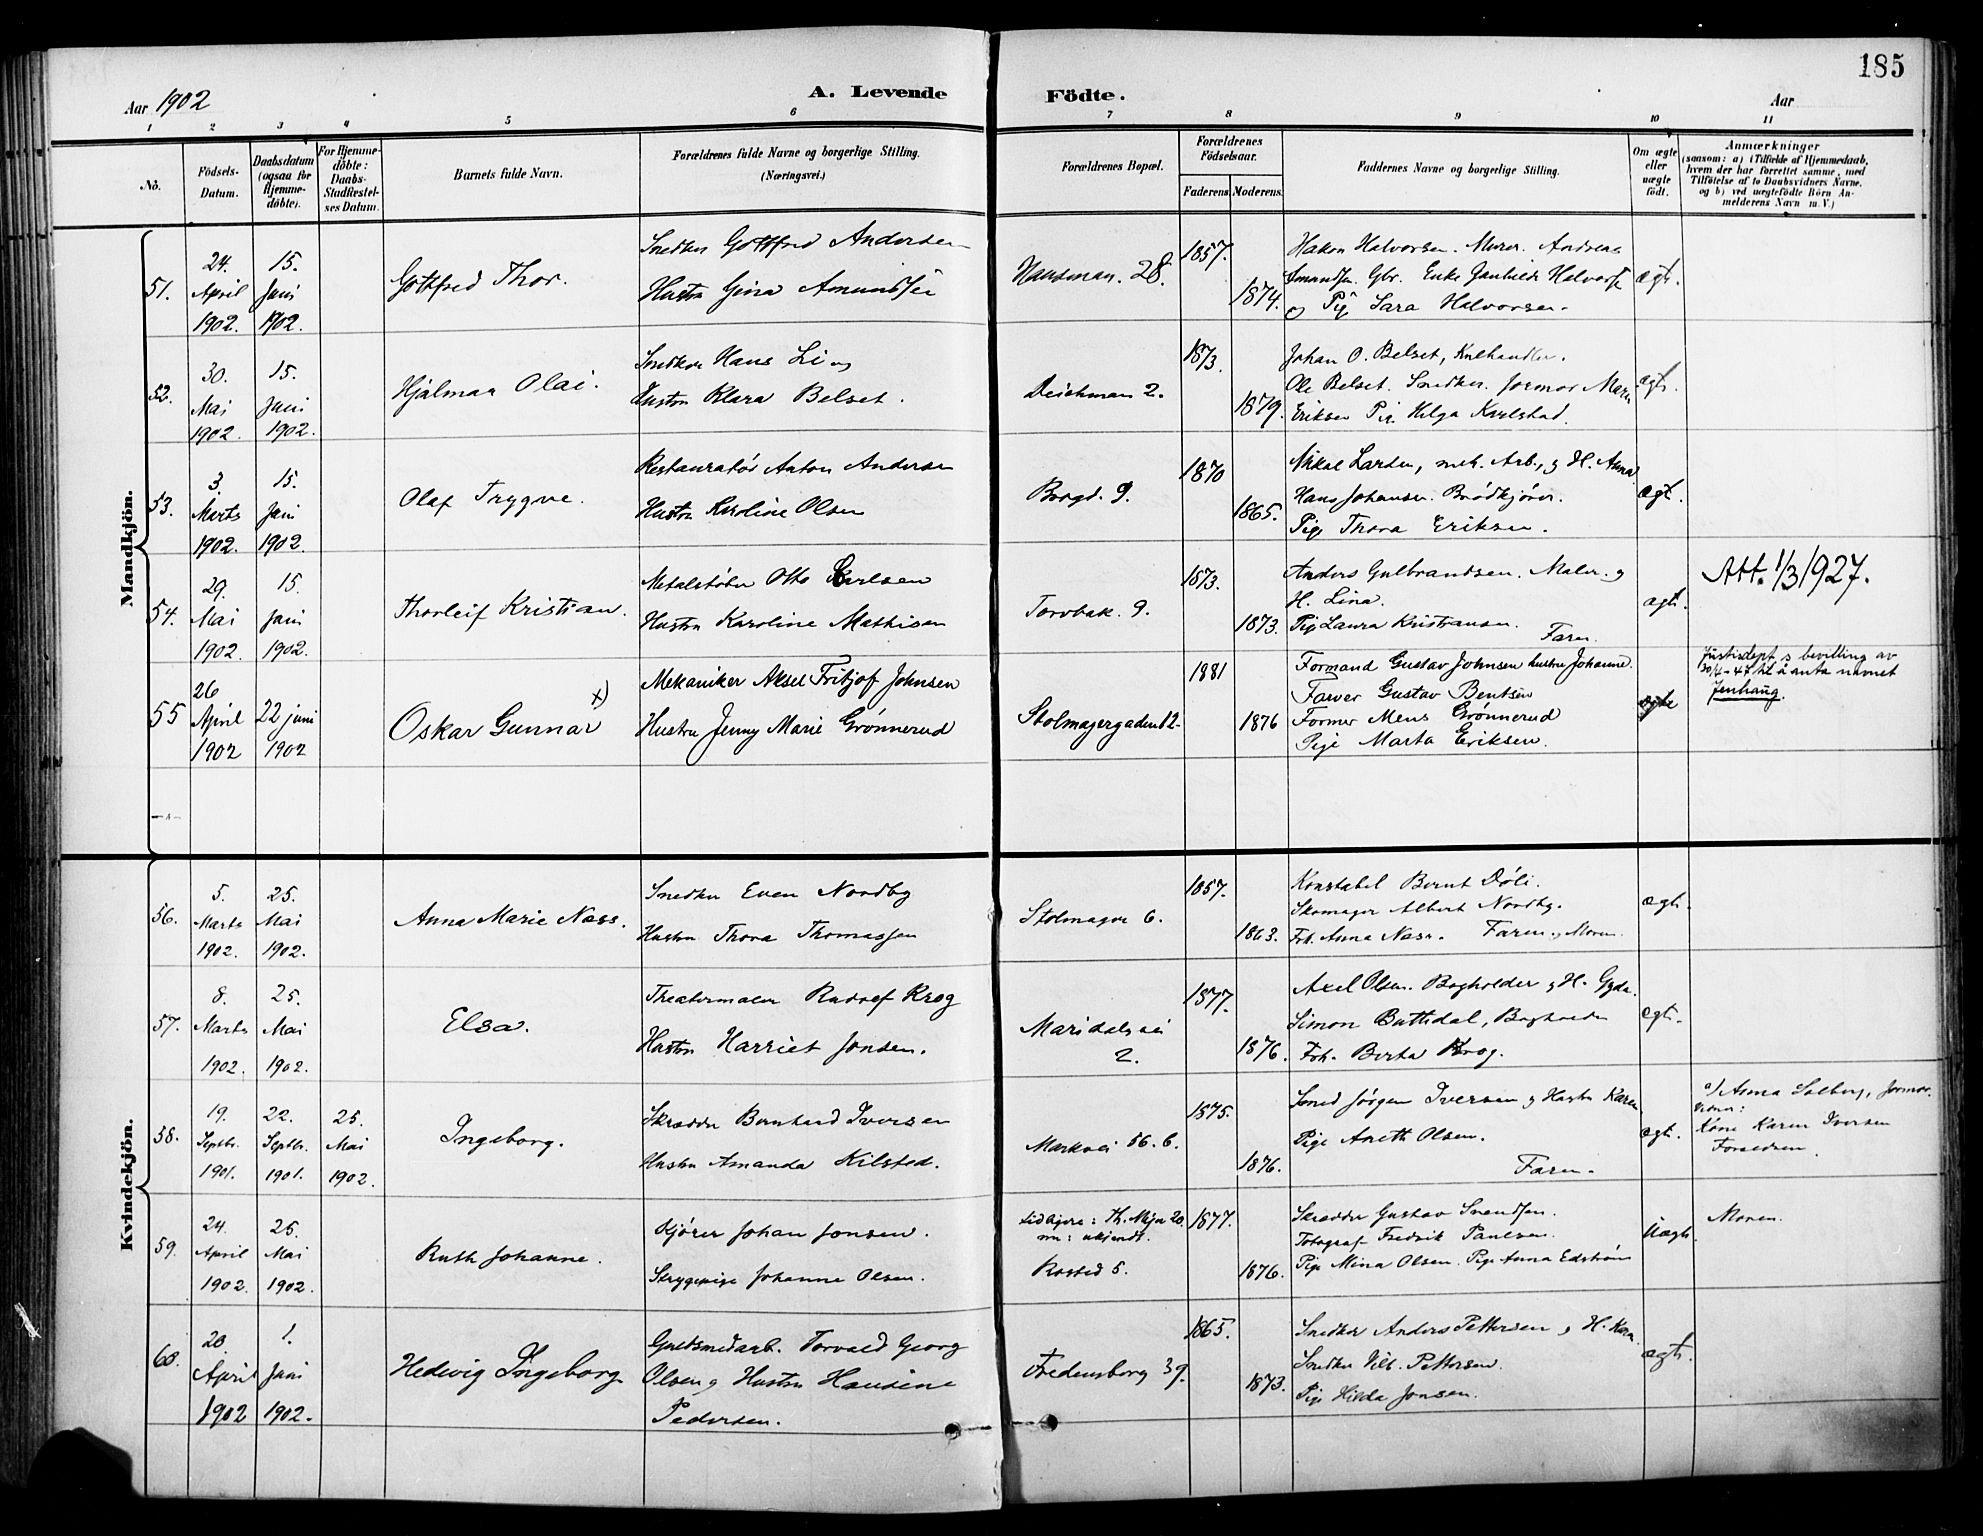 185
Aar 1902
A. Levende
Födte.
Aar
1 2 3 4 5 6 7 8 9 10 11
No.
Födsels-
Datum.
Daabsdatum
(ogsaa for
Hjemme-
döbte).
For Hjemme-
döbte:
Daabs-
Stadfæstel-
ses Datum.
Barnets fulde Navn.
Forældrenes fulde Navne og borgerlige Stilling.
(Næringsvei.)
Forældrenes Bopæl.
Forældrenes
Födselsaar.
Faderens.
Moderens.
Faddernes Navne og borgerlige Stilling.
Om ægte
eller
uægte
födt.
Anmærkninger
(saasom: a) i Tilfælde af Hjemmedaab,
hvem der har forrettet samme, med
Tilföielse af to Daabsvidners Navne,
og b) ved uægtefödte Börn An-
melderens Navn m. V.)
Mandkjön.
51.
24.
April
1902.
15.
Juni
1902.
Gottfred Thor.
Snedker Gottfred Andersen
Hustru Gina Amundsen
Hausman. 28.
1857.
1874.
Hakon Halvorsen. Murer. Andreas
Amundsen Gbr. Enke Gunhilda Halvors
og Pig Sara Halvorsen.
ægt.
52.
30.
Mai
1902.
15.
Juni
1902.
Hjalmar Olai.
Snedker Hans Li og
Hustru Klara Belset.
Deichman 2.
1873.
1879.
Johan O. Belset, Kulhandler.
Ole Belset. Snedker. Jormor Maren
Eriksen Pig. Helga Karlstad.
ægt.
53.
3.
Marts
1902.
15.
Juni
1902.
Olaf Trygve.
Restauratör Anton Andersen
Hustru Karoline Olsen
Borgd. 9.
1870
1865.
Mikal Larsen, mek. Arb., og H. Anna
Hans Johansen. Brödkjörer.
Pig Thora Eriksen.
ægt.
54.
29.
Mai
1902.
15.
Juni
1902.
Thorleif Kristian.
Metalstöber Otto Karlsen
Hustru Karoline Mathisen
Torvbak. 9.
1873.
1873.
Anders Gulbrandsen. Maler. og
H. Lina.
Pig Laura Kristiansen. Faren.
ægt.
Att. 1/3 1927.
55
26
April
1902
22 juni
1902
Oskar Gunnar x)
Mekaniker Aksel Fritjof Johnsen
Hustru Jenny Marie Grönnerud
Stolmagergaden 12-
1881
1876
Formand Gustav Johnsen hustru Johanne.
Farver Gustav Bentsen
Former Mens Grönnerud
Pige Marta Eriksen.
ægte
Justisdept s bevilling av
30/4-47 til å anta navnet
Jenhaug.
Kvindekjön.
56.
5.
Marts
1902.
25.
Mai
1902.
Anna Marie Næss.
Snedker Even Nordby
Hustru Thora Thomassen
Stolmager 6.
1857.
1863.
Konstabel Bernt Döli.
Skomager Albert Nordby.
Frk. Anna Næss. Faren og Moren.
ægt.
57.
8.
Marts
1902.
25.
Mai
1902.
Elsa.
Theatermaler Rudolf Krog
Hustru Harriet Jonsen.
Maridalsvei
2.
1877.
1876.
Axel Olsen. Bogholder og H. Gyda.
Simon Buttedal, Bogholder
Frk. Berta Krog.
ægt.
58.
19.
Septbr.
1901.
22.
Septbr.
1901.
25.
Mai
1902.
Ingeborg.
Skrædder Bernhard Iversen
Hustru Amanda Kilsted.
Markvei 56. b.
1875.
1876.
Smed Jörgen Iversen og Hustru Karen
Pige Aneth Olsen.
Faren.
ægt.
a) Anna Solberg, Jormor.
Vidner:
Kone Karen Iversen
Forældren.
59.
24.
April
1902.
25.
Mai
1902.
Ruth Johanne.
Kjörer Johan Jonsen.
Strygepige Johanne Olsen.
tidligere: Th. Mejer 20.
nu: ukjendt.
Rosted 5.
1877.
1876.
Skrædder Gustav Svendsen.
Fotograf Fredrik Paulsen.
Pige Mina Olsen. Pige Anna Edström
Uægt.
Moren.
60.
20.
April
1902
1.
Juni
1902.
Hedevig Ingeborg
Guldsmedarb. Torvald Georg
Olsen og Hustru Hansine
Pedersen.
Fredensborg 39.
1865.
1873.
Snedker Anders Pettersen og H. Karen
Snedker Vilh. Pettersen.
Pige Hilda Jonsen.
ægt.